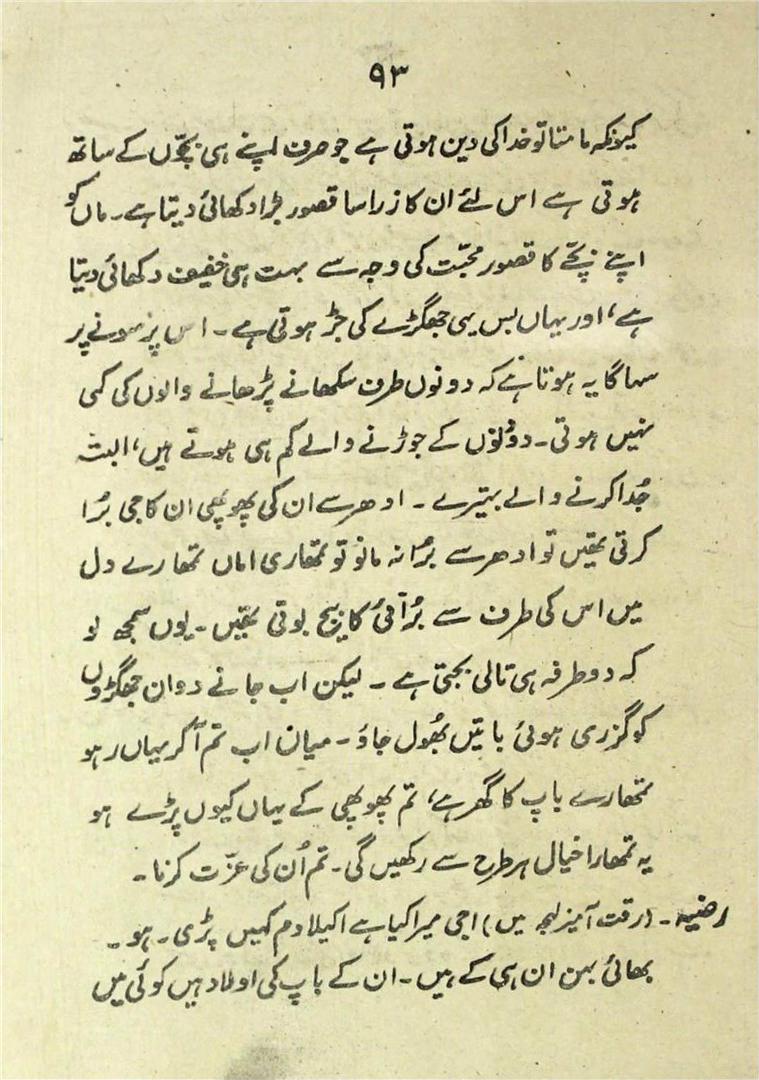 ۹۳
کیونکہ مامتا تو خدا کی دین ہوتی ہے جو صرف اپنے ہی بچّوں کے ساتھ
ہوتی ہے اس لئے ان کا زراسا قصور بڑا دکھائی دیتا ہے۔ ماں کو
اپنے بچّے کا قصور محبّت کی وجہ سے بہت ہی خفیف دکھائی دیتا
ہے، اور یہاں بس یہی جھگڑے کی جڑ ہوتی ہے۔ اس پر سونے پر
سہاگا یہ ہوتا ہے کہ دونوں طرف سکھانے پڑھانے والوں کی کمی
نہیں ہوتی۔ دونوں کے جوڑنے والے کم ہی ہوتے ہیں، البتہ
جُدا کرنے والے بہتیرے۔ ادھر سے ان کی پھوپھی ان کا جی بُرا
کرتی تھیں تو ادھر سے بُرا نہ مانو تو تمھاری اماں تمھارے دل
میں اس کی طرف سے بُرائی کا بیج بوتی تھیں۔ یوں سمجھ لو
کہ دو طرفہ ہی تالی بجتی ہے۔ لیکن اب جانے دو ان جھگڑوں
کو گزری ہوئی باتیں بھُول جاؤ۔ میاں اب تم آکر یہاں رہو
تمھارے باپ کا گھر ہے، تم پھوپھی کے یہاں کیوں پڑے ہو
یہ تمھارا خیال ہر طرح سے رکھیں گی۔ تم اُن کی عزّت کرنا۔
رضیہ۔ (رقت آمیز لہجہ میں) اجی میرا کیا ہے اکیلا دم کہیں پڑی۔ ہو۔
بھائی بہن ان ہی کے ہیں۔ ان کے باپ کی اولاد ہیں کوئی میں